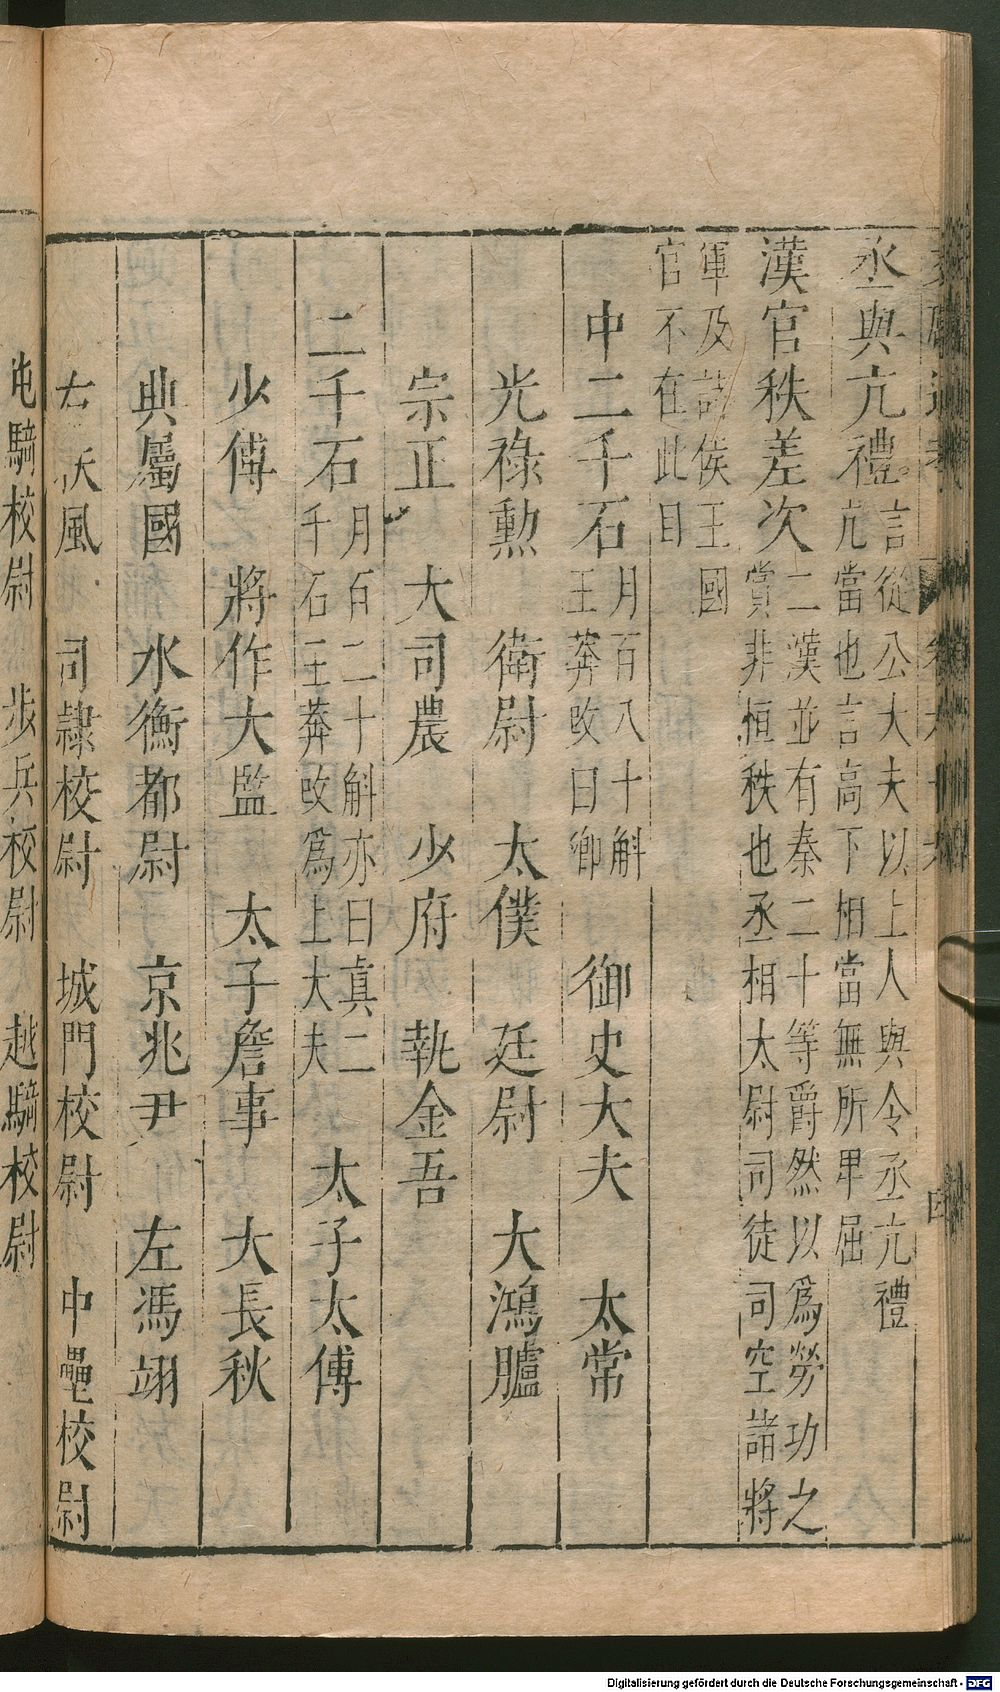 丞與亢禮言從公大夫以上人與令丞亢禮
亢當也言高下相當無所卑屈
漢官秩差次二漢並有秦二十等爵然以爲勞功之
賞非恒秩也丞相太尉司徒司空諸將
軍及諸侯王國
官不在此目
中二千石月百八十斛
王莽改曰卿
御史大夫 太常
光祿勲 衛尉 太僕 廷尉 大鴻臚
宗正 大司農 少府 執金吾
二千石月百二十斛亦曰真二
千石王莽改爲上大夫
太子太傅
少傅 將作大監 太子詹事 大長秋
典屬國 水衡都尉 京兆尹 左馮翊
右扶風 司隷校尉 城門校尉 中壘校尉
屯騎校尉 步兵校尉 越騎校尉
Digitalisierung gefördert durch die Deutsche Forschungsgemeinschaft - DFG